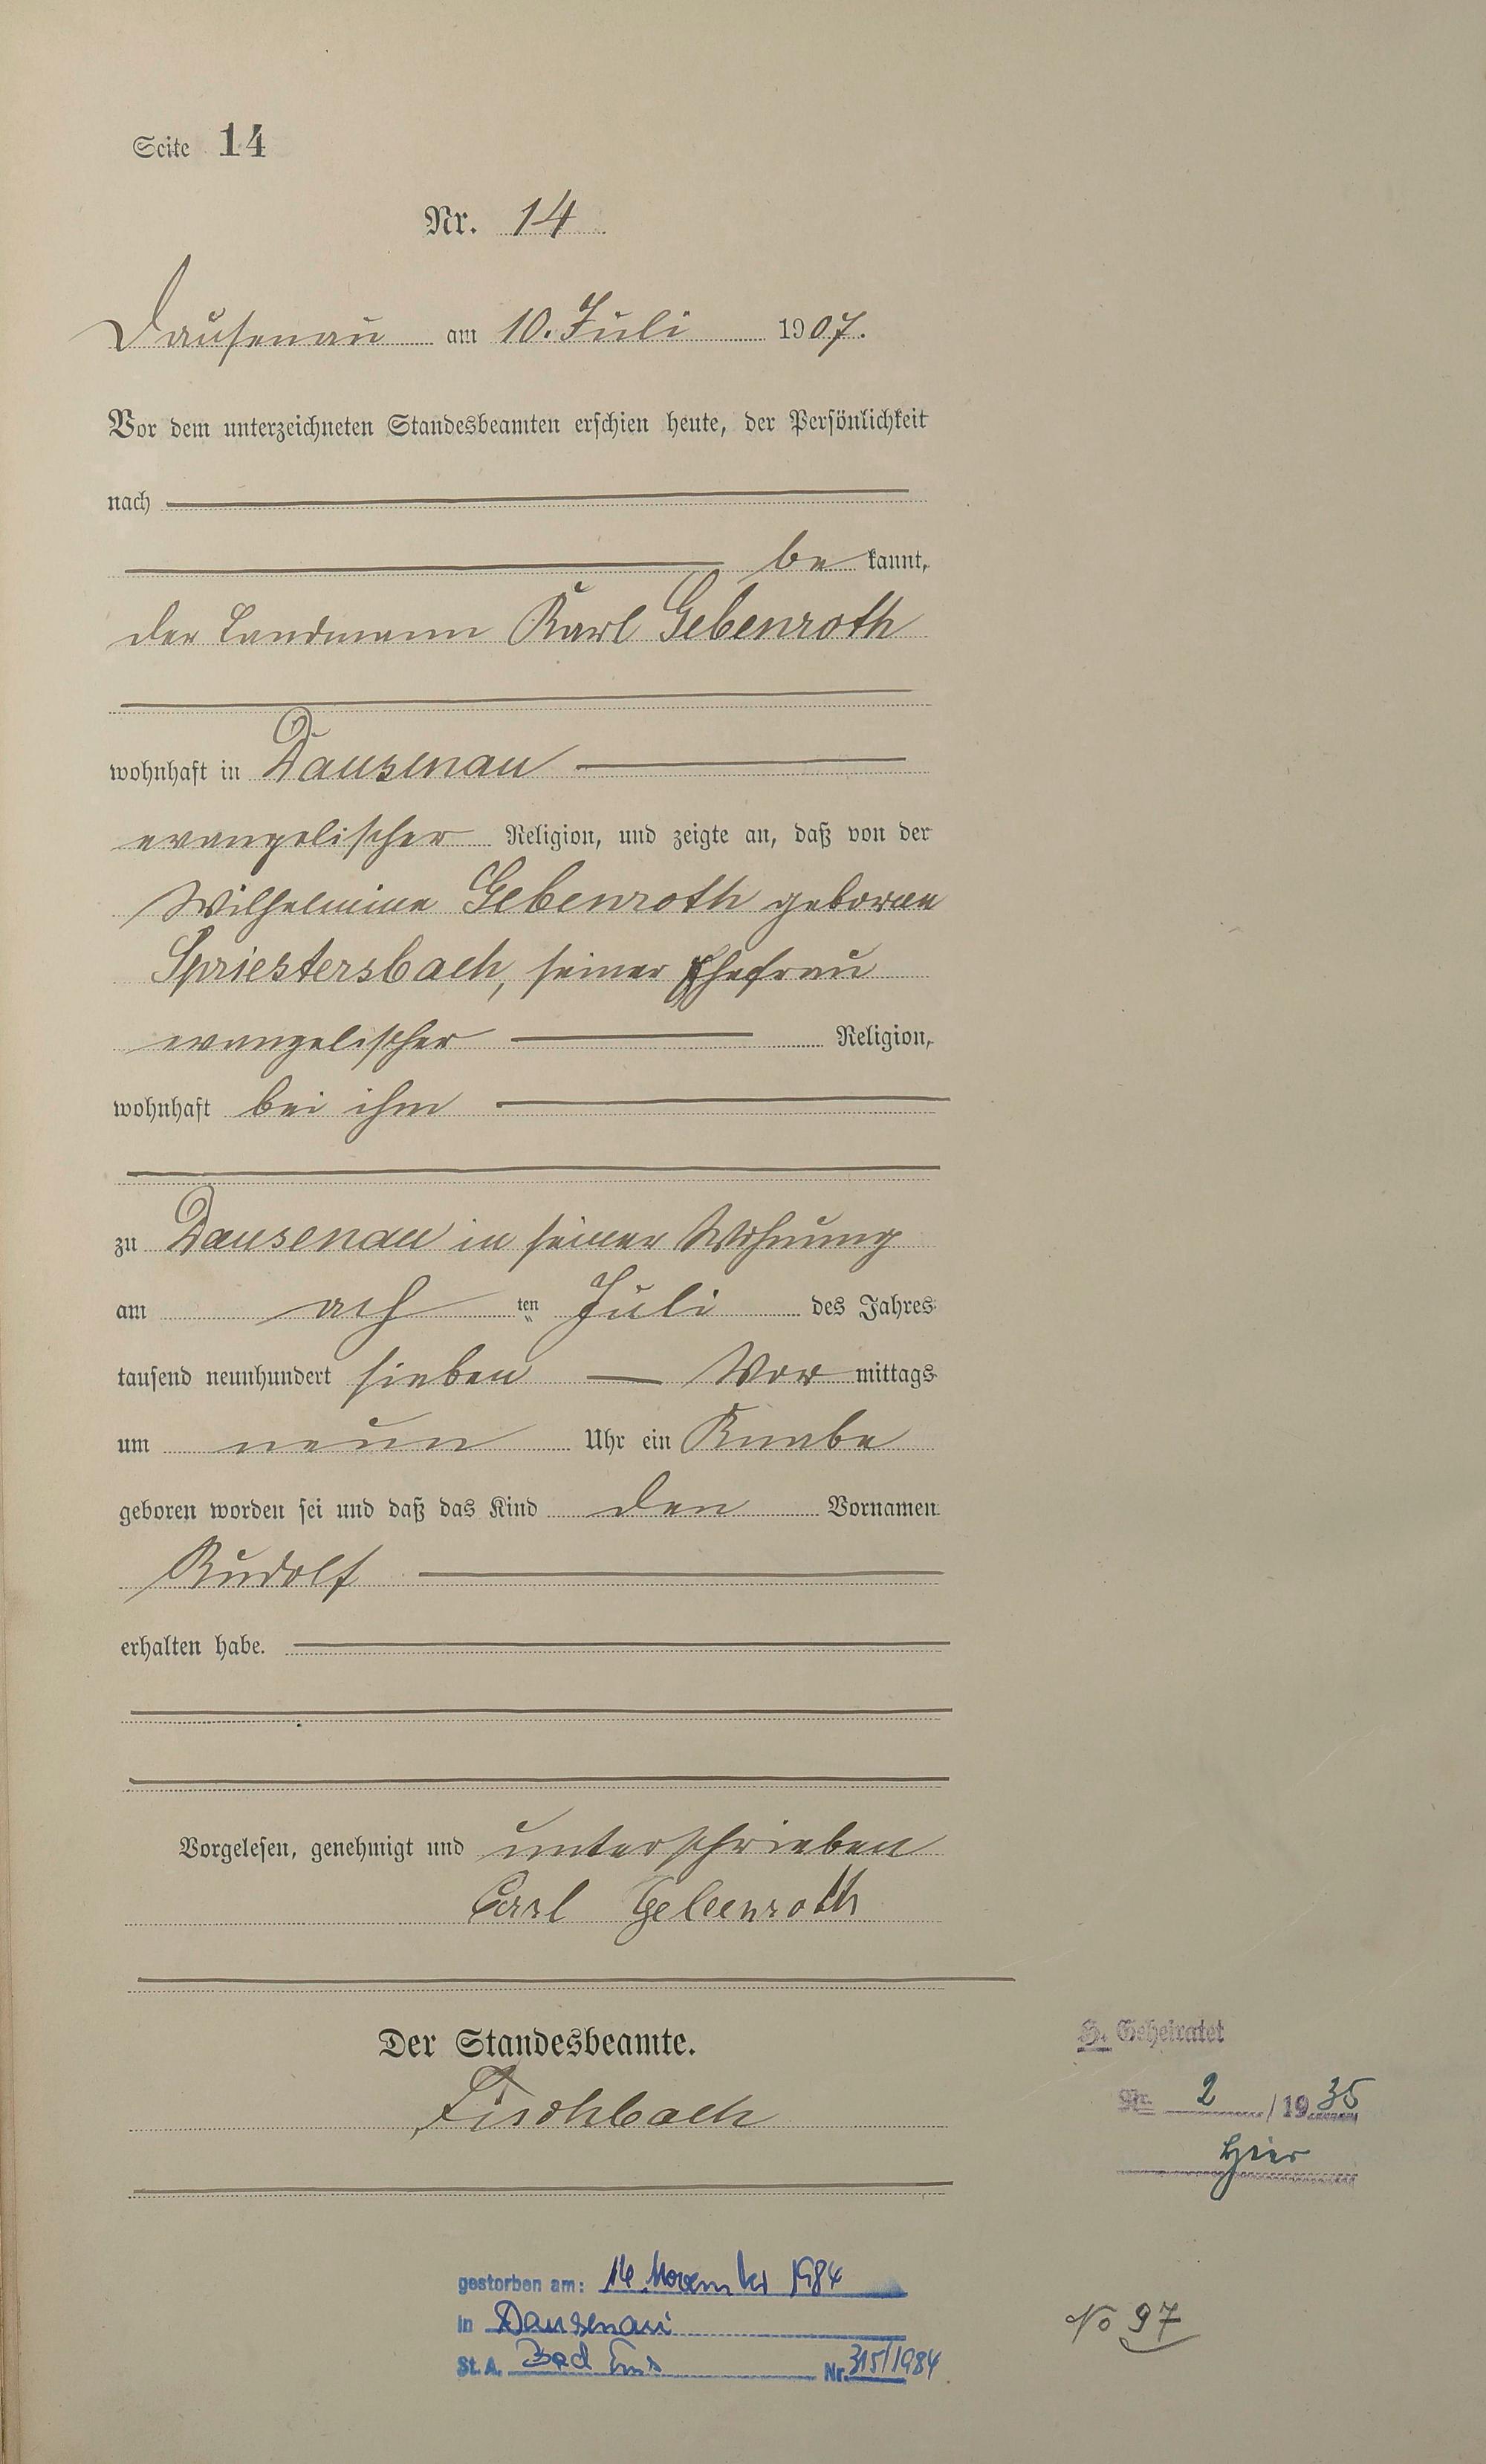 Seite 14
Nr. 14
Dausenau am 10. Juli 1907.
Vor dem unterzeichneten Standesbeamten erschien heute, der Persönlichkeit
nach
be kannt,
der Landmann Karl Gebenroth
wohnhaft in Dausenau
evangelischer Religion, und zeigte an, daß von der
Wilhelmine Gebenroth geborne
Spriestersbach, seiner Ehefrau
evangelischer Religion,
wohnhaft bei ihm
zu Dausenau in seiner Wohnung
am ach ten Juli des Jahres
tausend neunhundert sieben Vor mittags
um neun Uhr ein Knabe
geboren worden sei und daß das Kind den Vornamen
Rudolf
erhalten habe.
Vorgelesen, genehmigt und unterschrieben
Carl Gebenroth
Der Standesbeamte.
Fischbach
H. Geheiratet
Nr. 2 / 1935
hier
gestorben am: 14 November 1984
in Dausenau
St. A. Bad Ems Nr. 315/1984
No 97